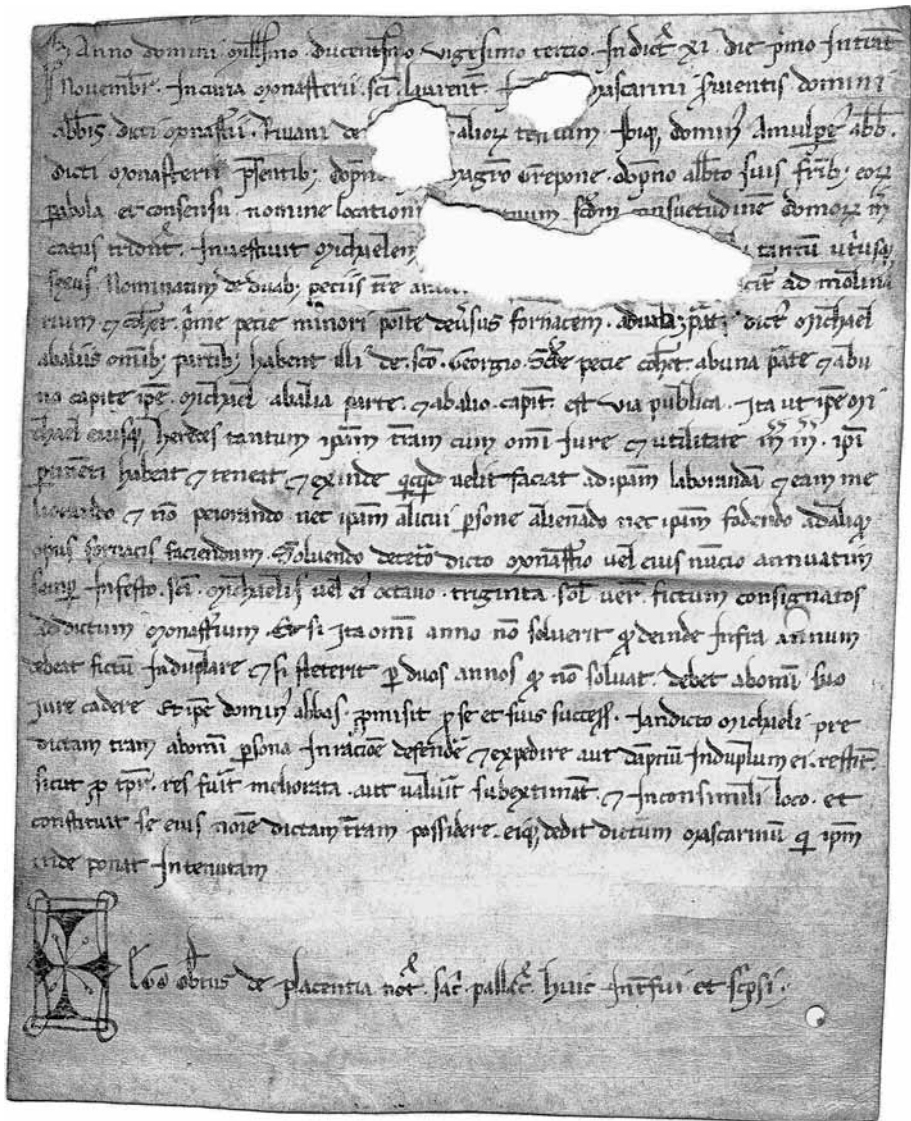 Anno domini millsimo ducentsimo vigesimo tercio. Indict. xi. die pimo Intrat
Novembr. In curia monasterii. sci. laurent. mascarini svientis domini
abbis dicti monastii. Rivani de alior testium. Ibiq, domin Arnulpe abb.
dicti monasterii psentib; dopno magro Crepone. dopno albto suis frib; eor
pabola et consensu. nomine location scdm consuetudine domor m
catus tridnt. Investivit Michaelem tantu utiusq,
sexus. Nominatim de duab; peciis tre ad molina
rium. et coher. pime pecie minori poite devsus fornacem. aduab; ptib; dict Michael
abaliis omib; partib; habent illi de. sco. Georgio. Scde pecie coher. abuna pate et abu
no capite ipe. Michael abalia parte. et abalio. capit. est via publica. Ita ut ipe Mi
chael eiusq, heredes tantum ipam tram cum omi iure et utilitate ipi
ptineti habeat et teneat et exinde qcqd velit faciat ad ipam laboranda et eam me
liorando et no peiorando. nec ipam alicui psone alienado nec ipam fodendo adaliq
opus fornacis faciendum. Solvendo deceto dicto monastio vel eius nucio annuatim
semp. Infesto. sci. Michaelis vel ei octavo. triginta. sol. ver. fictum consignatos
ad dictum monastium. Et si ita omi anno no solverit q deinde infra annum
debeat fictu Induplare et si steterit p duos annos q no solvat. debet abomi suo
iure cadere. Et ipe domin abbas. pmisit p se et suis success. Iandicto Michaeli pre
dictam tram abomi psona Inracioe defende et expedire aut dapnu Induplum ei. restit.
sicut p tpr. res fuit meliorata. aut valuit subextimat. et Inconsimili loco. et
constituit se eius noie dictam tram possidere. eiq, dedit dictum mascarinu q ipm
inde ponat Intenutam
Ego obtus de placentia not. sac. pallac. huic Intfui et scpsi.